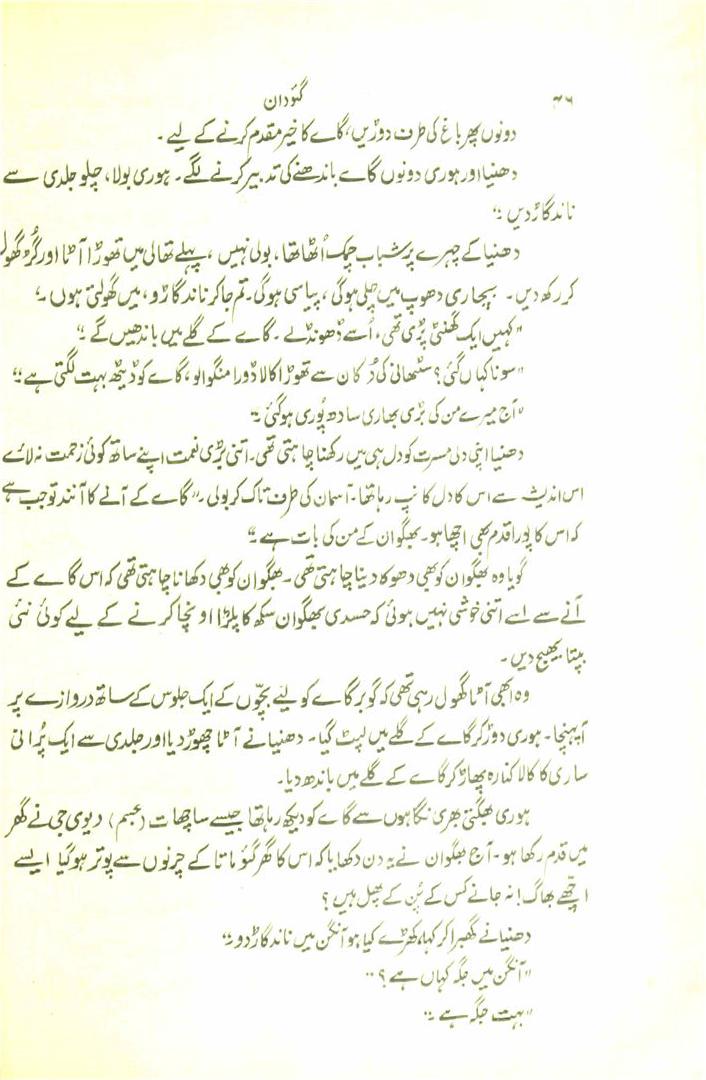 ۴۶ گئودان
دونوں پھر باغ کی طرف دوڑیں، گاے کا خیر مقدم کرنے کے لیے۔
دھنیا اور ہوری دونوں گاے باندھنے کی تدبیر کرنے لگے۔ ہوری بولا، چلو جلدی سے
ناند گاڑ دیں۔"
دھنیا کے چہرے پر شباب چمک اُٹھا تھا، بولی نہیں، پہلے تھالی میں تھوڑا آٹا اور گُڑ گھول
کر رکھ دیں۔ بیچاری دھوپ میں چلی ہوگی، پیاسی ہوگی۔ تم جا کر ناند گاڑو، میں گھولتی ہوں۔"
"کہیں ایک گھنٹی پڑی تھی، اُسے ڈھونڈ لے۔ گاے کے گلے میں باندھیں گے۔"
"سونا کہاں گئی؟ سٹھانی کی دُکان سے تھوڑا کالا ڈورا منگوا لو، گاے کو ڈیٹھ بہت لگتی ہے۔"
"آج میرے من کی بڑی بھاری سادھ پُوری ہوگئی۔"
دھنیا اپنی دلی مسرت کو دل ہی میں رکھنا چاہتی تھی۔ اتنی بڑی نعمت اپنے ساتھ کوئی زحمت نہ لائے
اس اندیشہ سے اس کا دل کانپ رہا تھا۔ آسمان کی طرف تاک کر بولی۔ "گاے کے آنے کا آنند تو جب ہے
کہ اس کا پورا قدم بھی اچھا ہو۔ بھگوان کے من کی بات ہے۔"
گویا وہ بھگوان کو بھی دھوکا دینا چاہتی تھی۔ بھگوان کو بھی دکھانا چاہتی تھی کہ اس گاے کے
آنے سے اسے اتنی خوشی نہیں ہوئی کہ حسدی بھگوان سکھ کا پلڑا اونچا کرنے کے لیے کوئی نئی
بپتا بھیج دیں۔
وہ ابھی آٹا گھول رہی تھی کہ گوبر گاے کو لیے بچّوں کے ایک جلوس کے ساتھ دروازے پر
آ پہنچا۔ ہوری دوڑ کر گاے کے گلے میں لپٹ گیا۔ دھنیا نے آٹا چھوڑ دیا اور جلدی سے ایک پُرانی
ساری کا کالا کنارہ پھاڑ کر گاے کے گلے میں باندھ دیا۔
ہوری بھگتی بھری نگاہوں سے گاے کو دیکھ رہا تھا جیسے ساچھات (عجسم) دیوی جی نے گھر
میں قدم رکھا ہو۔ آج بھگوان نے یہ دن دکھایا کہ اس کا گھر گئو ماتا کے چرنوں سے پوتر ہوگیا ایسے
اچھّے بھاگ! نہ جانے کس کے پُن کے پھل ہیں؟
دھنیا نے گھبرا کر کہا، کھڑے کیا ہو آنگن میں ناند گاڑ دو۔"
"آنگن میں جگہ کہاں ہے؟"
"بہت جگہ ہے۔"